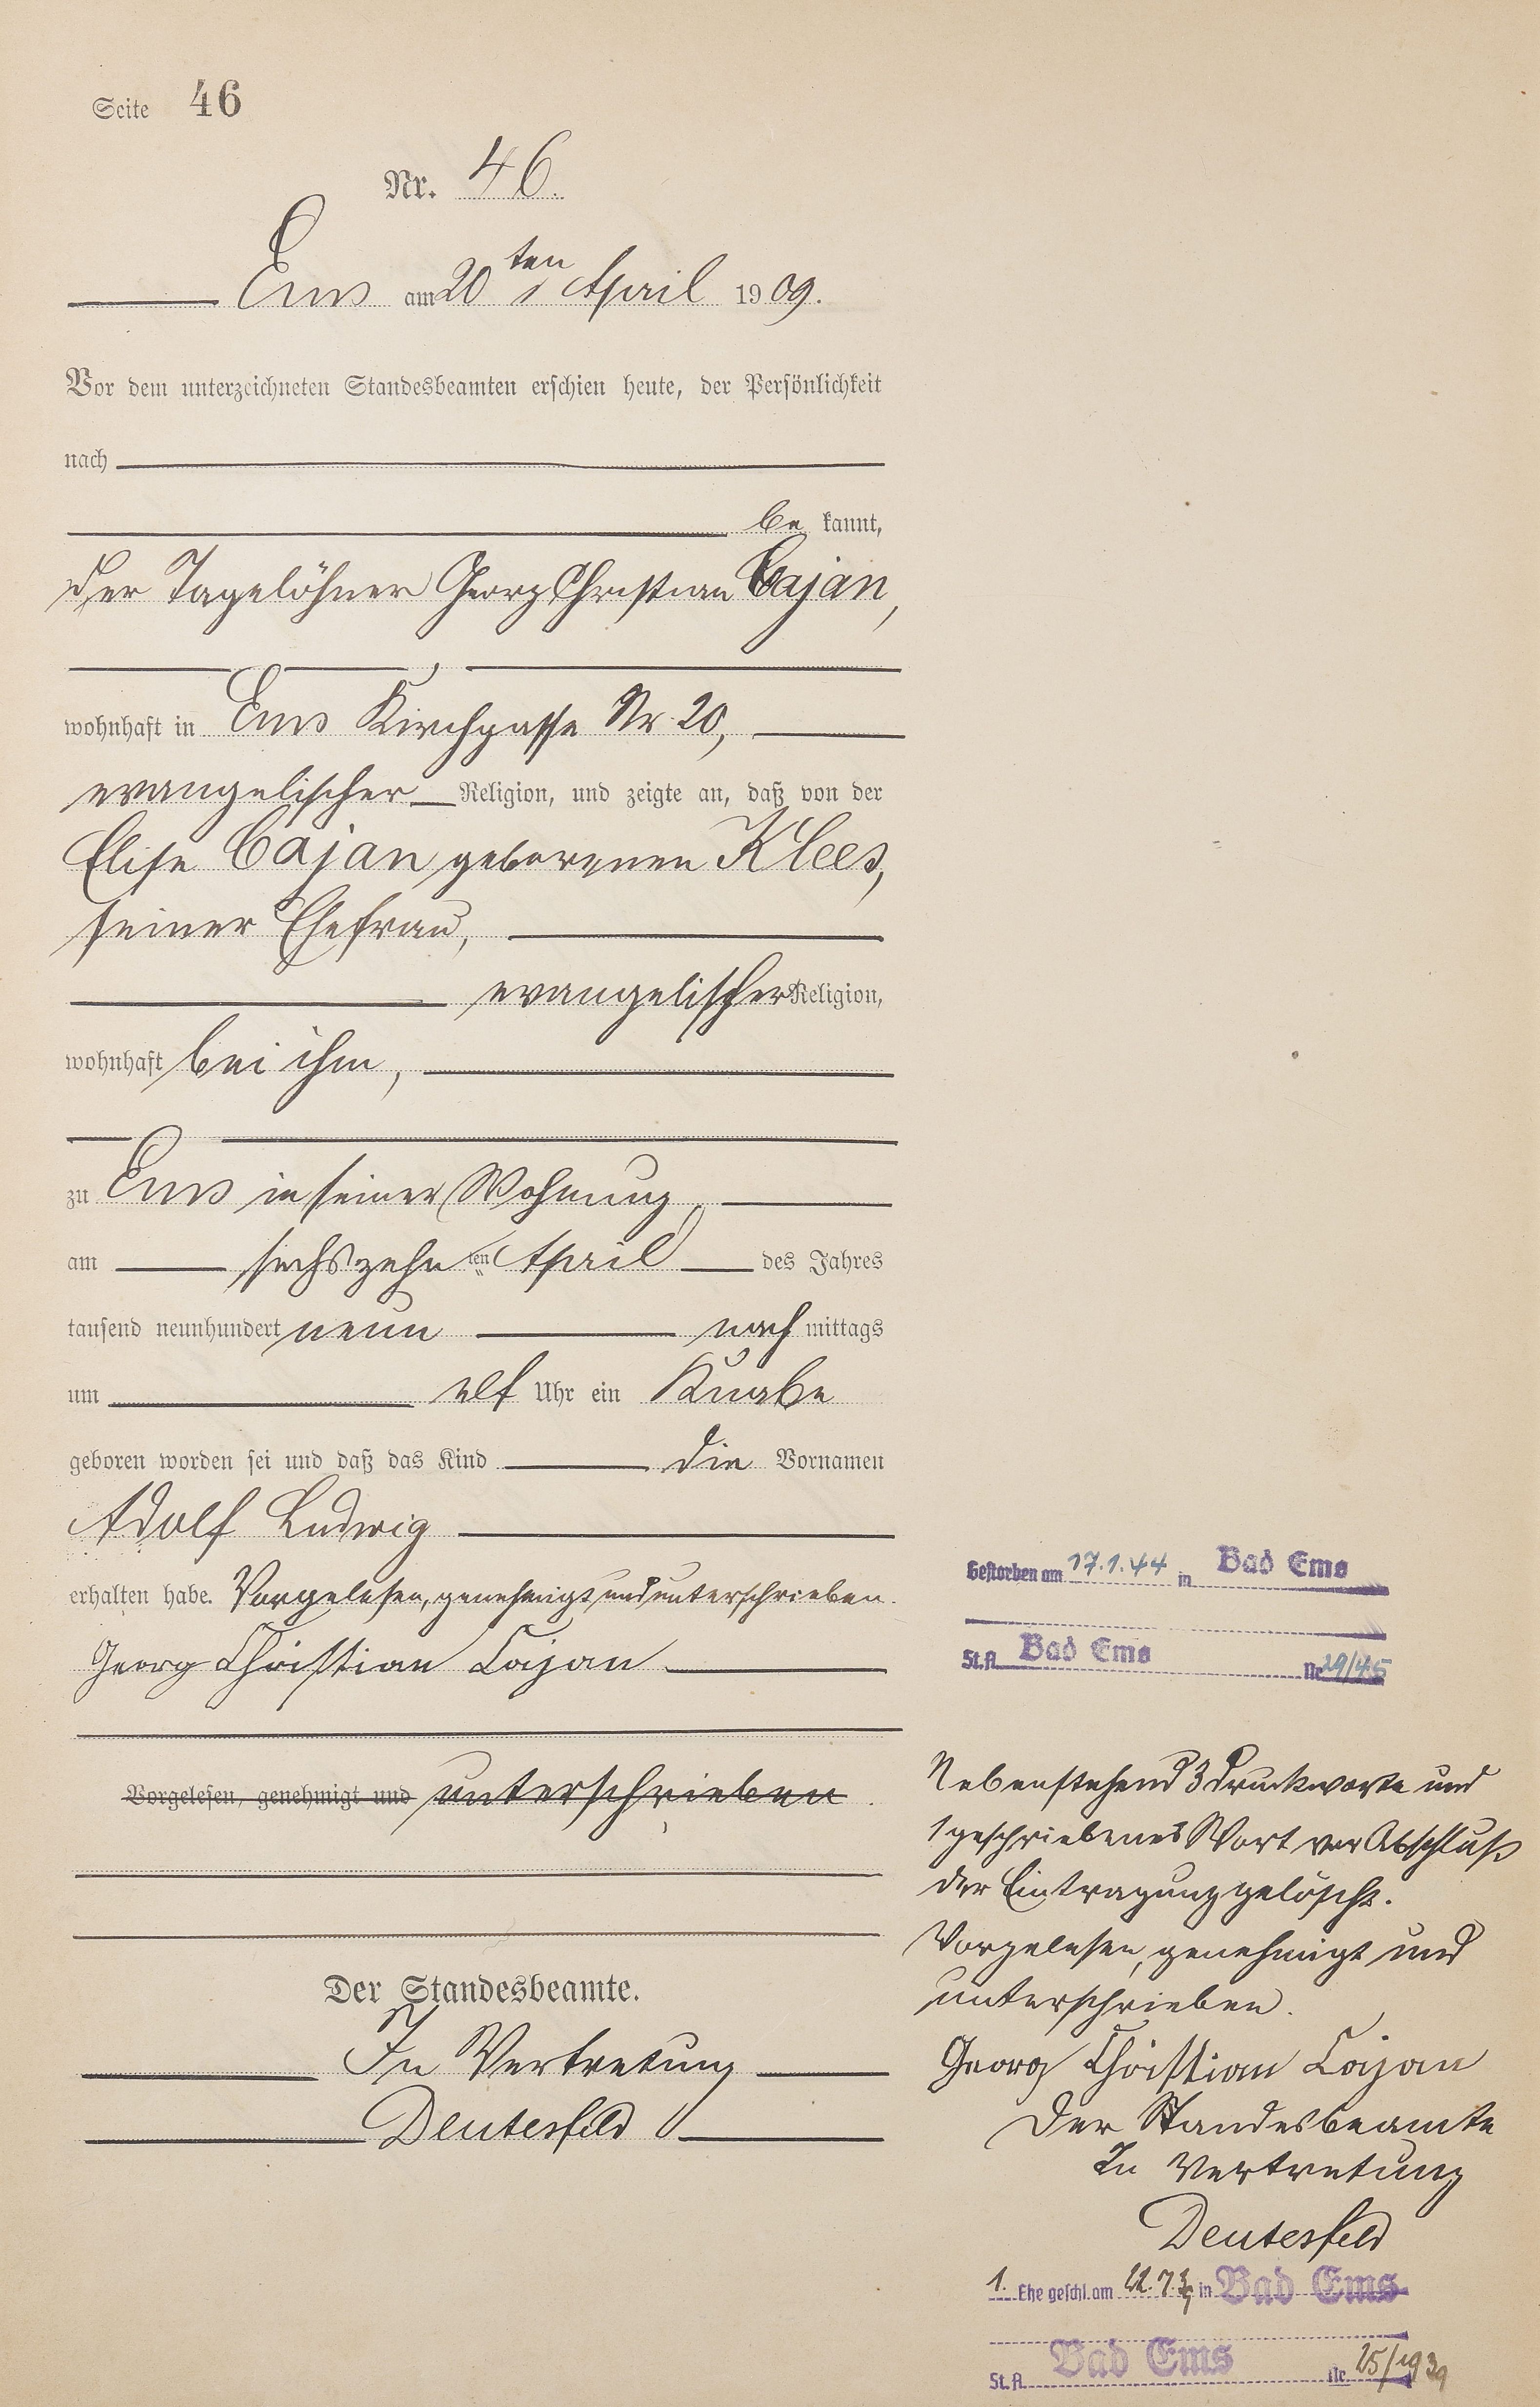 Seite 46
Nr. 46.
Ems am 20ten April 1909.
Vor dem unterzeichneten Standesbeamten erschien heute, der Persönlichkeit
nach
be kannt,
der Tagelöhner Georg Christian Cajan,
wohnhaft in Ems Kirchgasse Nr. 20,
evangelischer Religion, und zeigte an, daß von der
Elise Cajan geborenen Klees,
seiner Ehefrau,
evangelischer Religion,
wohnhaft bei ihm,
zu Ems in seiner Wohnung,
am sechszehnten April des Jahres
tausend neunhundert neun nachmittags
um elf Uhr ein Knabe
geboren worden sei und daß das Kind die Vornamen
Adolf Ludwig
erhalten habe. Vorgelesen, genehmigt und unterschrieben.
Georg Christian Cajan
Vorgelesen, genehmigt und unterschrieben.
Der Standesbeamte.
In Vertretung
Deutesfeld
Gestorben am 17.1.44 in Bad Ems
St.A. Bad Ems Nr. 29/45
Nebenstehend 3 Druckworte und
1 geschriebenes Wort vor Abschluß
der Eintragung gelöscht.
Vorgelesen, genehmigt und
unterschrieben.
Georg Christian Cajan
Der Standesbeamte
In Vertretung
Deutesfeld
1. Ehe geschl. am 22.7.39 in Bad Ems
St.A. Bad Ems Nr. 25/1939